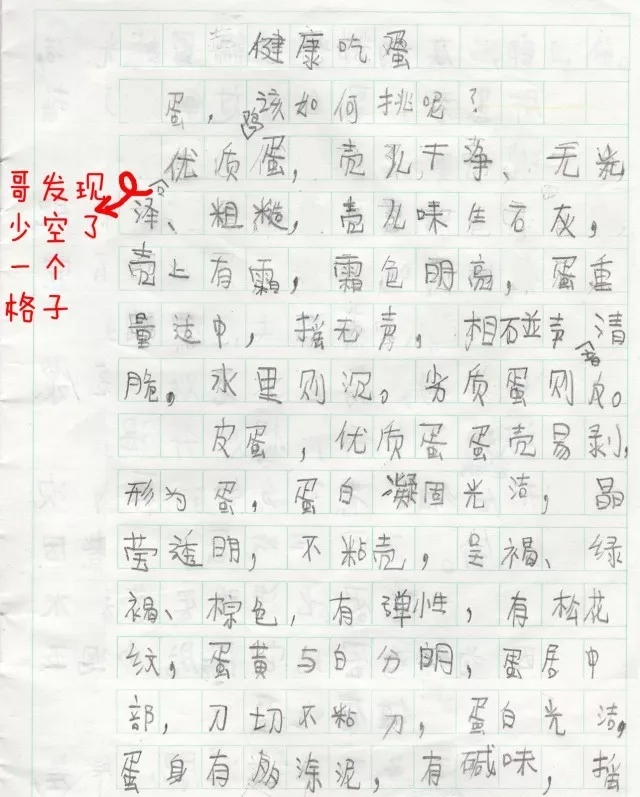 健康吃蛋
蛋，该如何挑呢？
鸡
优质蛋，壳孔干净、无光
泽、粗糙，壳孔味生石灰，
壳上有霜，霜色明亮，蛋重
量适中，摇无声，相碰声清
脆。水里则沉。劣质蛋则反。
皮蛋，优质蛋蛋壳易剥，
形为蛋，蛋白凝固光洁，晶
莹透明，不粘壳，呈褐、绿
褐、棕色，有弹性，有松花
纹，蛋黄与白分明，蛋居中
部，刀切不粘刀，蛋白光洁，
蛋身有涂泥，有碱味，摇
哥发现
少空了
一个
格子